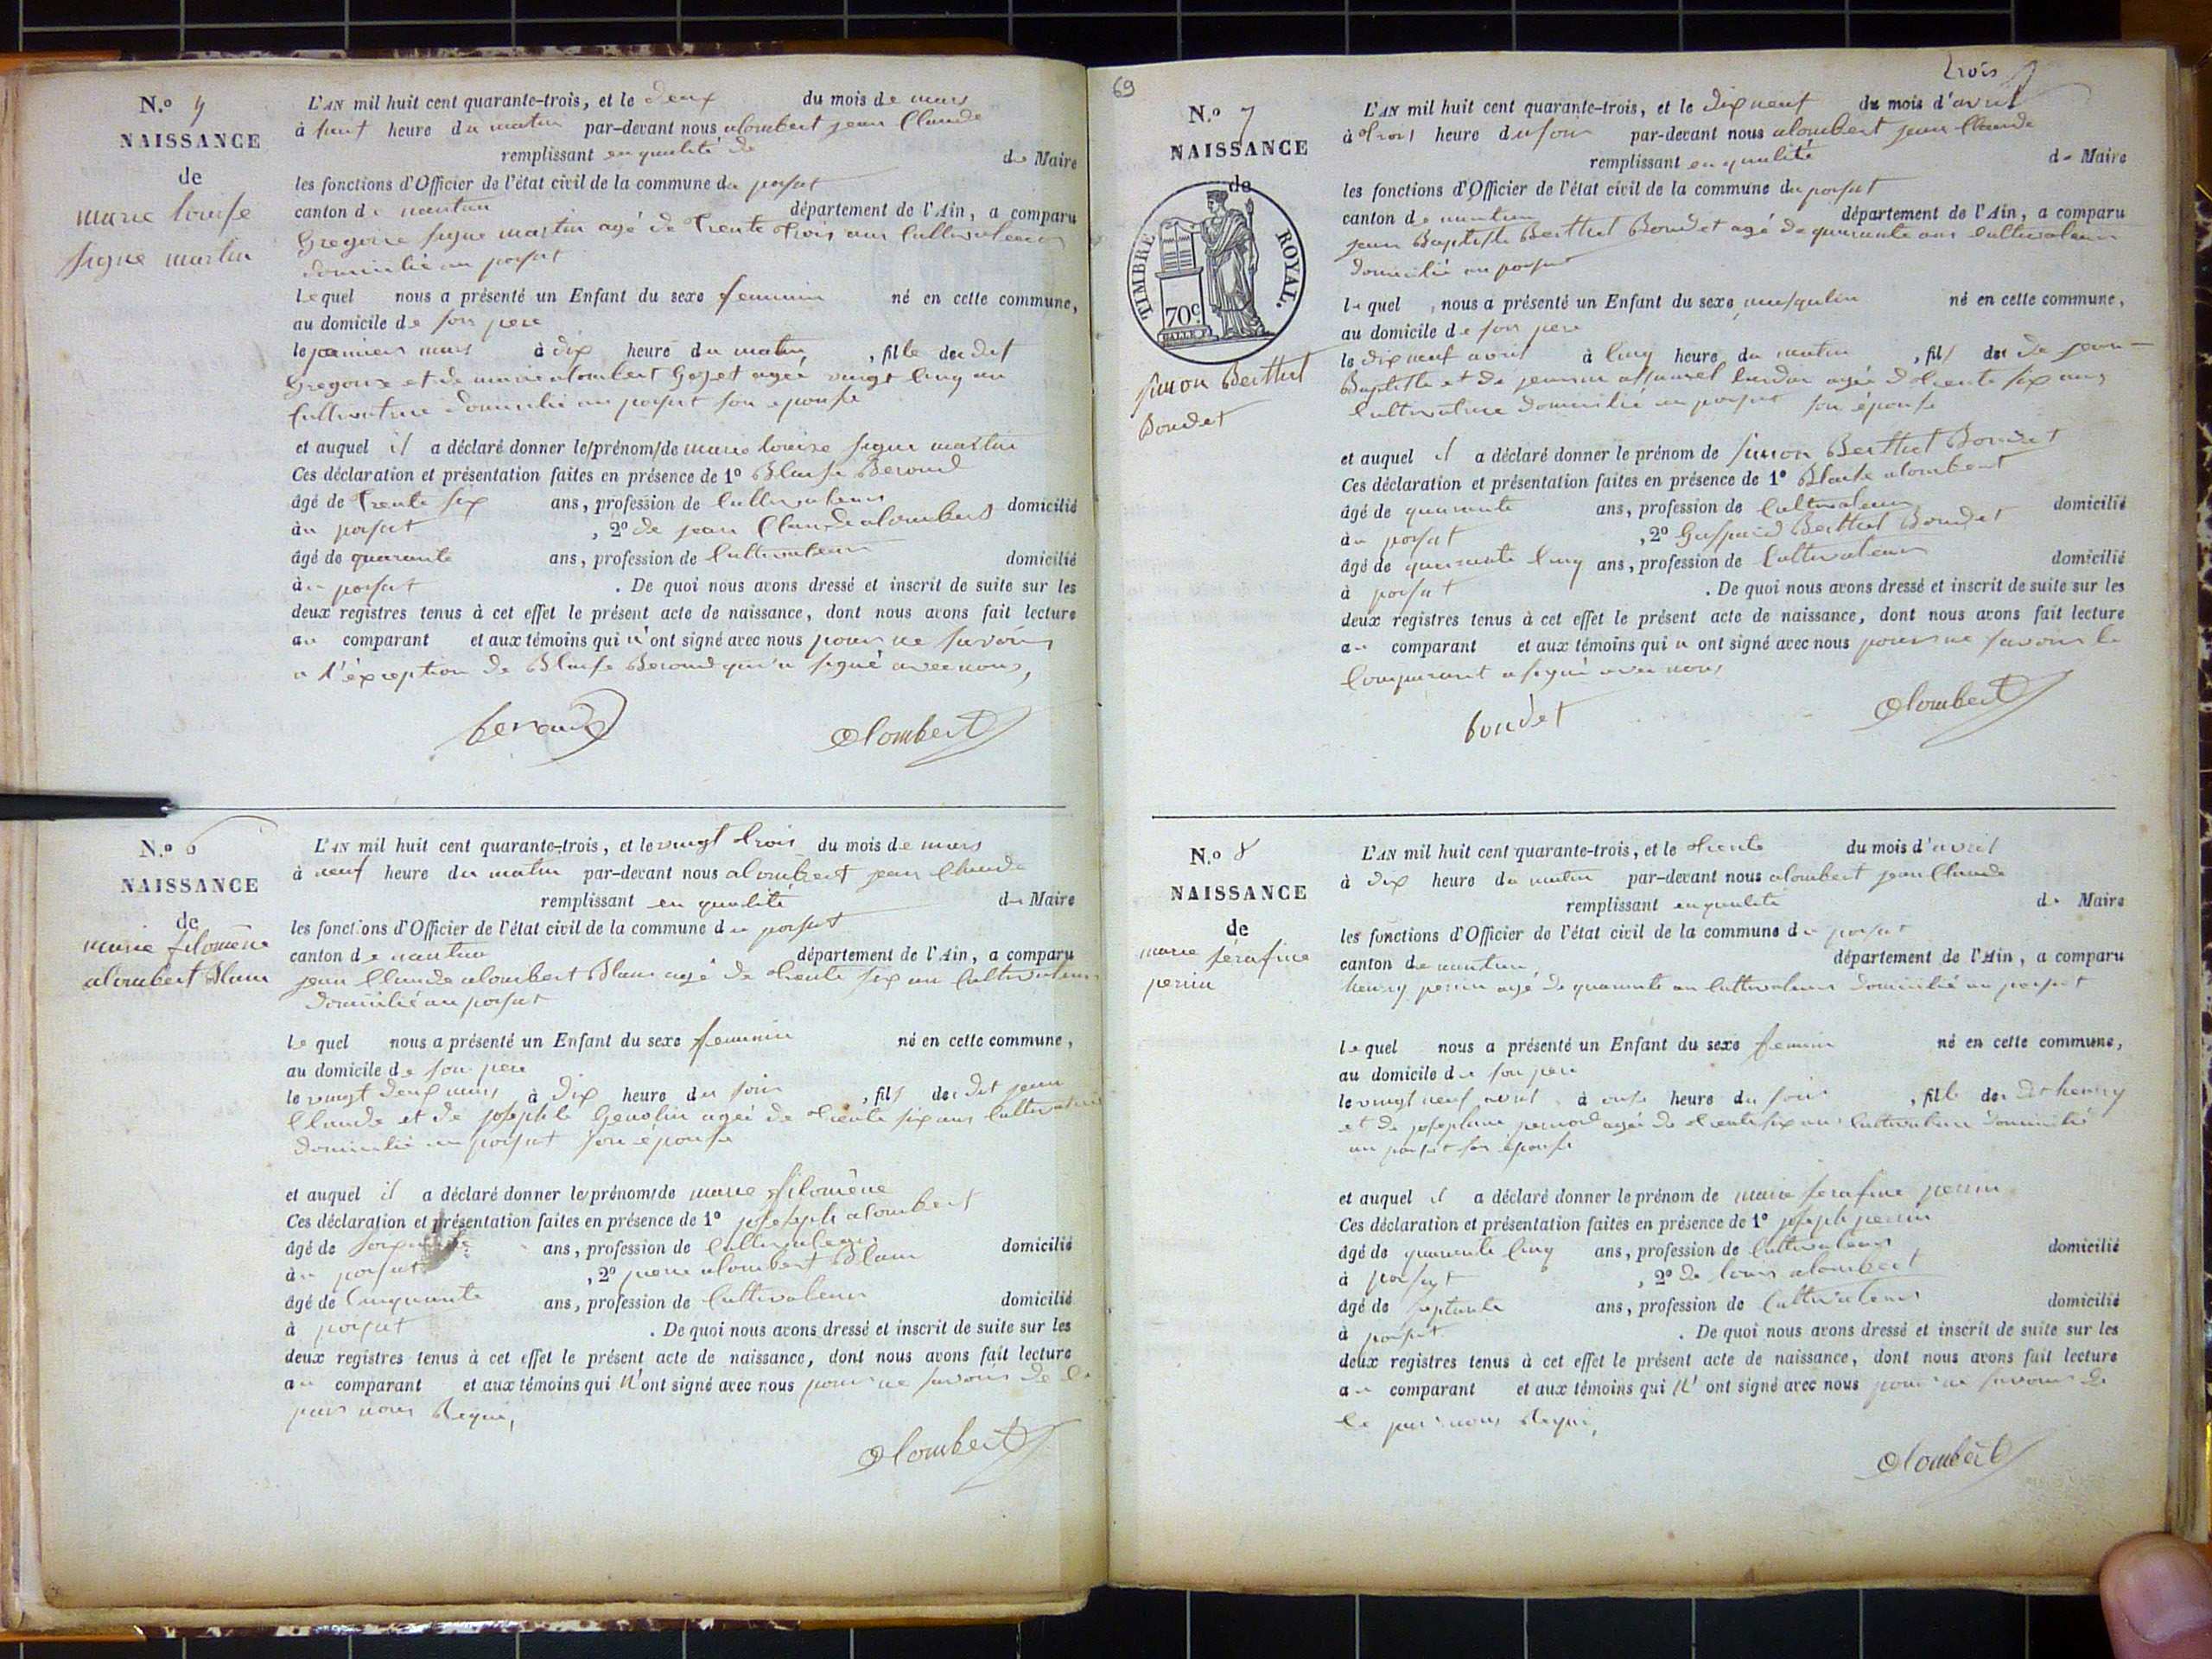 N.º
NAISSANCE
de
marie louise
signe martin
L'AN mil huit cent quarante-trois, et le deux du mois de mars
à huit heure du matin par-devant nous alombert jean Claude
remplissant en qualité de de Maire
les fonctions d'Officier de l'état civil de la commune du porsat
canton de nantua département de l'Ain, a comparu
Gregoire signe martin agé de trente trois ans Cultivateur
domicilié au porsat
lequel nous a présenté un Enfant du sexe feminin né en cette commune,
au domicile de son pere
le premier mars à dix heure du matin, fille du dit
Gregoire et de marie alombert Goget agée vingt cinq an
Cultivatrice domicilié au porsat son epouse
et auquel il a déclaré donner les prénoms de marie louise signe martin
Ces déclaration et présentation faites en présence de 1º Blaise Beroud
âgé de trente six ans, profession de Cultivateur domicilié
au porsat, 2º de jean Claude alombert
âgé de quarante ans, profession de Cultivateur domicilié
au porsat. De quoi nous avons dressé et inscrit de suite sur les
deux registres tenus à cet effet le présent acte de naissance, dont nous avons fait lecture
au comparant et aux témoins qui n'ont signé avec nous pour ne savoir
a l'éxception de Blaise Beroud qui a signé avec nous,
beroud alombert
N.º 6
NAISSANCE
de
marie filomène
alombert Blanc
L'AN mil huit cent quarante-trois, et le vingt trois du mois de mars
à neuf heure du matin par-devant nous alombert jean Claude
remplissant en qualité de Maire
les fonctions d'Officier de l'état civil de la commune du porsat
canton de nantua département de l'Ain, a comparu
jean Claude alombert Blanc agé de trente six an Cultivateur
domicilié au porsat
le quel nous a présenté un Enfant du sexe feminin né en cette commune,
au domicile de son pere
le vingt deux mars à dix heure du soir, fils du dit jean
Claude et de josephte Genolin agée de trente six ans Cultivatrice
domicilié au porsat son épouse
et auquel il a déclaré donner les prénoms de marie filomène
Ces déclaration et présentation faites en présence de 1º joseph alombert
âgé de ans, profession de Cultivateur domicilié
au porsat, 2º pierre alombert Blanc
âgé de Cinquante ans, profession de Cultivateur domicilié
à porsat. De quoi nous avons dressé et inscrit de suite sur les
deux registres tenus à cet effet le présent acte de naissance, dont nous avons fait lecture
au comparant et aux témoins qui n'ont signé avec nous pour ne savoir de le
par nous Requi,
alombert
69
trois
N.º 7
NAISSANCE
de
TIMBRE ROYAL.
70c.
simon Berthet
Boudet
L'AN mil huit cent quarante-trois, et le dix neuf du mois d'avril
à trois heure du soir par-devant nous alombert jean Claude
remplissant en qualité de Maire
les fonctions d'Officier de l'état civil de la commune du porsat
canton de nantua département de l'Ain, a comparu
jean Baptiste Berthet Boudet agé de quarante ans Cultivateur
domicilié au porsat
le quel, nous a présenté un Enfant du sexe masqulin né en cette commune,
au domicile de son pere
le dix neuf avril à Cinq heure du matin, fils de jean
Baptiste et de agée de trente six ans
Cultivatrice domicilié au porsat son épouse
et auquel il a déclaré donner le prénom de simon Berthet Boudet
Ces déclaration et présentation faites en présence de 1º Blaise alombert
âgé de quarante ans, profession de Cultivateur domicilié
au porsat, 2º Gaspard Berthet Boudet
âgé de quarante Cinq ans, profession de Cultivateur domicilié
à porsat. De quoi nous avons dressé et inscrit de suite sur les
deux registres tenus à cet effet le présent acte de naissance, dont nous avons fait lecture
au comparant et aux témoins qui n ont signé avec nous pour ne savoir le
Comparant a signé avec nous
boudet alombert
N.º 8
NAISSANCE
de
marie sérafine
perrin
L'AN mil huit cent quarante-trois, et le trente du mois d'avril
à dix heure du matin par-devant nous alombert jean Claude
remplissant en qualité de Maire
les fonctions d'Officier de l'état civil de la commune du porsat
canton de nantua département de l'Ain, a comparu
henry perrin agé de quarante an Cultivateur domicilié au porsat
le quel nous a présenté un Enfant du sexe feminin né en cette commune,
au domicile de son pere
le vingt neuf avril à onse heure du soir, fille du dt henry
et de agée de trente six ans Cultivatrice domicilié
au porsat son épouse
et auquel il a déclaré donner le prénom de marie serafine perrin
Ces déclaration et présentation faites en présence de 1º joseph perrin
âgé de quarante Cinq ans, profession de Cultivateur domicilié
à porsat, 2º de louis alombert
âgé de septante ans, profession de Cultivateur domicilié
à porsat. De quoi nous avons dressé et inscrit de suite sur les
deux registres tenus à cet effet le présent acte de naissance, dont nous avons fait lecture
au comparant et aux témoins qui n' ont signé avec nous pour ne savoir de
le par nous Requi,
alombert